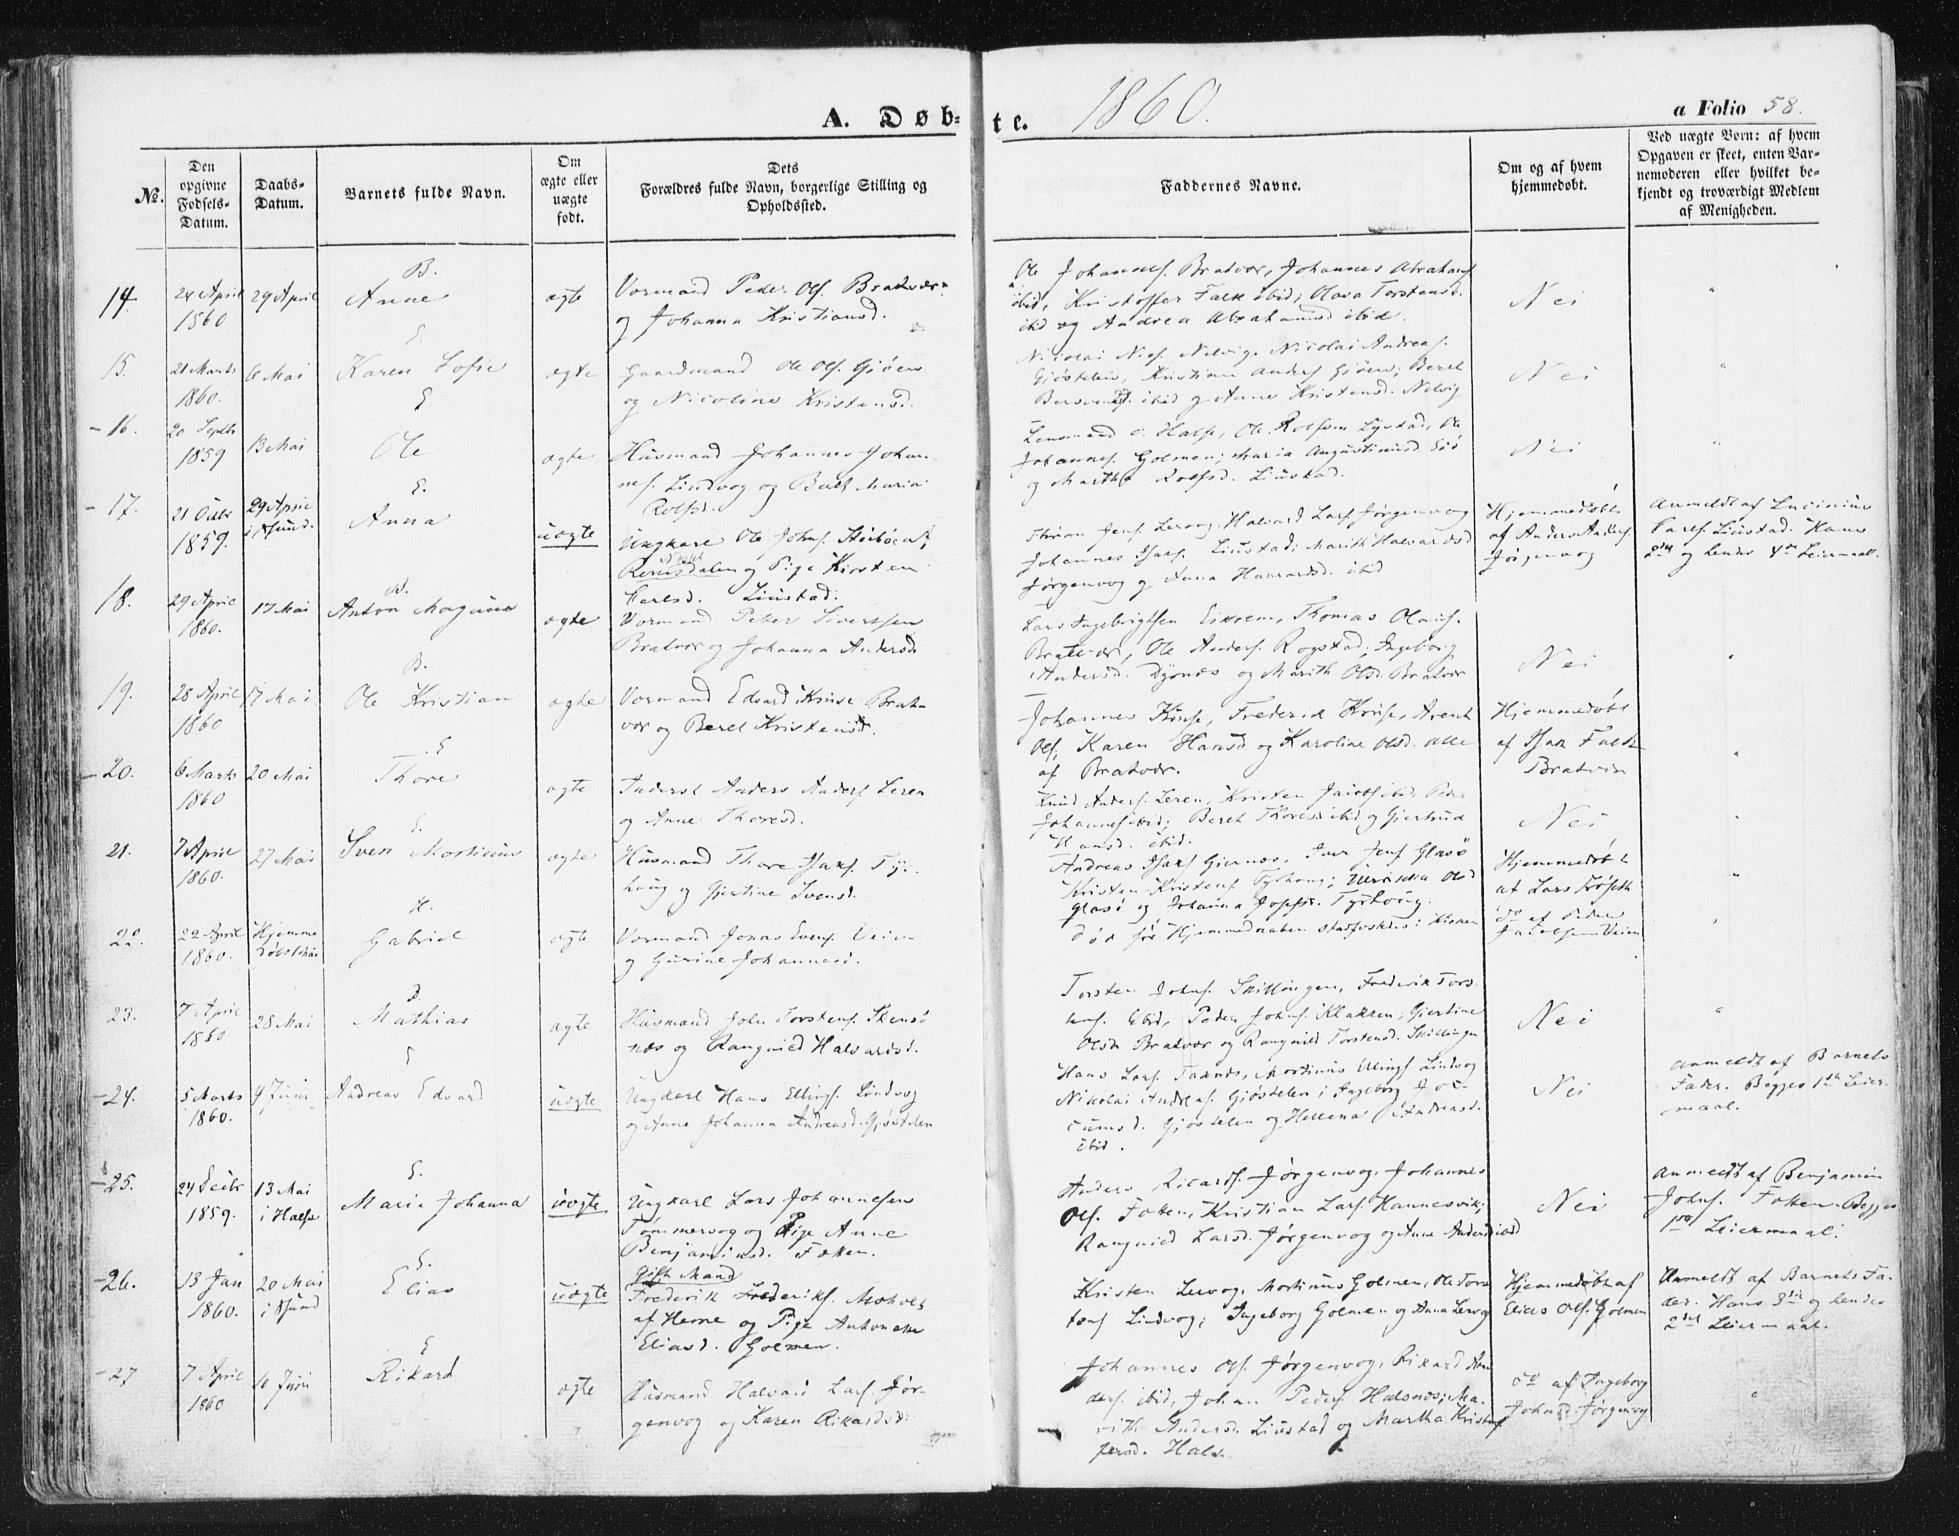 A. Døb-
te.
1860.
a Folio 58.
№.
Den opgivne Fødsels-Datum.
Daabs-Datum.
Barnets fulde Navn.
Om ægte eller uægte født.
Dets Forældres fulde Navn, borgerlige Stilling og Opholdssted.
Faddernes Navne.
Om og af hvem hjemmedøbt.
Ved uægte Børn: af hvem Opgaven er skeet, enten Barnemoderen eller hvilket bekjendt og troværdigt Medlem af Menigheden.
B.
14. 24 April 29 April Anne ægte Vormand Peder Ols. Bratvær
1860 og Johanna Kristiansd.
Ole Johannes. Bratvær, Johannes Abrahams
ibid, Kristoffer Falk ibid; Olava Torstensd.
ibid og Andrea Abrahamsd ibid.
Nei "
E.
15. 21 Marts 6 Mai Karen Sofie ægte Gaardmand Ole Ols. Gjøen
1860. og Nicoline Kristensd.
Nicolai Niels. Nelvig, Nicolai Andreas.
Gjøstelen, Kristian Anders Gjøen; Beret
ibid og Anne Kristensd. Nelvig
Nei "
E
16. 20 Septbr 13 Mai Ole ægte Husmand Johannes Johan-
1859 nes. Lindvog og Beret Maria
Rolfsd.
Lensmand Halse, Ole Rolfsen Lystad, Ole
Johannes. Golmen; Maria Augustinusd
og Marthe Rolfsd. Liustad.
Nei "
E.
17. 21 Octbr 29 April Anna uægte Ungkarl Ole Johns.
1859. i Sund. Romsdalen og Pige Kirsten
Carlsd. Liustad.
Jens. Lervog, Halvard Lars. Jørgenvog
Johannes Isaks. Liustad; Marith Halvardsd
Jørgenvog og Anna Haavardsd. ibid
Hjemmedøbt
af Anders Anders.
Jørgenvog
Anmeldt af
Carls. Liustad. Hans
2det og hendes 4de Leiermaal.
18. 29 April 17 Mai Anton Magnus ægte Vormand Peter Sivertsen
1860. Bratvær og Johanna Andersd.
Lars Ingebrigtsen Eikrem, Thomas Olaus.
Bratvær, Ole Anders. Rogstad; Ingeborg
Andersd. Dyrnes og Marith Olsd. Bratvær
Nei "
B.
19. 28 April 17 Mai Ole Kristian ægte Vormand Edvard Kruse Brat-
1860 vær og Beret Kristensd.
Johannes Kruse, Frederik Kruse, Arent
Ols, Karen Hansd og Karoline Olsd. alle
af Bratvær.
Hjemmedøbt
af Isak Falk
Bratvær
"
E
20. 6 Marts 20 Mai Thore ægte Inderst Anders Anders. Leren
1860 og Anne Thoresd.
Knud Anders. Leren, Kristen Jacobs ibid, Peder
Johannes ibid; Beret Thoresd ibid og Gjertrud
Hansd. ibid.
Nei "
E.
21. 7 April 27 Mai Sven Mortinus ægte Husmand Thore Isaks. Ty-
1860. houg og Gjertine Svensd.
Andreas Isaks Gjernes, Iver Jens Glasø
Kristen Kristens. Tyrhoug; Olsd
Glasø og Johanna Josefsd. Tyrhoug.
Hjemmedøbt
af Lars Frøseth
"
H.
22. 22 April Hjemme Gabriel ægte Vormand Jonas Evens. Veien
1860. døbt og Gurine Johannesd.
Død før Hjemmedaaben stadfæstedes i Kirken
do af Peder
Jacobsen Veien
"
B
23. 7 April 28 Mai Mathias ægte Husmand John Torstens. Stensø
1860 næs og Rangnild Halvardsd.
Torsten Johns. Skillingen, Frederik Tors-
tens. ibid, Peder Johns. Klakken; Gjertine
Olsd. Bratvær og Rangnild Torstensd. Skillingen
Nei "
E
24. 5 Marts 9 Juni Andreas Edvard uægte Ungkarl Hans Ellings. Lindvog
1860. og Anne Johanna Andreasd. Gjøstelen
Hans Lars. Taknes, Mortinus Ellings Lindvog
Nikolai Andreas. Gjøstelen; Ingeborg Joc-
cumsd. Gjøstelen og Hellena Andreasd.
ibid.
Nei
Anmeldt af Barnets
Fader. Begges 1ste Leier-
maal.
E.
25. 24 Decbr 13 Mai Marie Johanna uægte Ungkarl Lars Johannesen
1859. i Halse Tømmervog og Pige Anne
Benjaminsd. Fætten.
Anders Ricards. Jørgenvog, Johannes
Ols. Fætten, Kristian Lars. Hannesvik;
Rangnild Larsd. Jørgenvog og Anne Andersd ibid
Nei
Anmeldt af Benjamin
Johns. Fætten. Begges
1ste Leiermaal.
E.
26. 13 Jan 20 Mai Elias uægte Gift Mand
1860. i Sund Frederik Frederiks.
af Hemne og Pige Antonette
Eliasd. Golmen.
Kristen Lervog, Mortinus Golmen, Ole Tors-
tens Lindvog; Ingeborg Golmen og Anna Lervog
Hjemmedøbt af
Elias Ols. Golmen
Anmeldt af Barnets Fa-
der. Hans 3die og hendes
2det Leiermaal.
E
27 7 April 10 Juni Rikard ægte Husmand Halvard Lars. Jør-
1860 genvog og Karen Rikardsd.
Johannes Ols. Jørgenvog, Rikard An-
ders. ibid, Johan Peders Halsnes; Ma-
rith Andersd. Liustad og Martha Kristof
fersd. Halse
do af Ingeborg
Johnsd. Jørgenvog
"